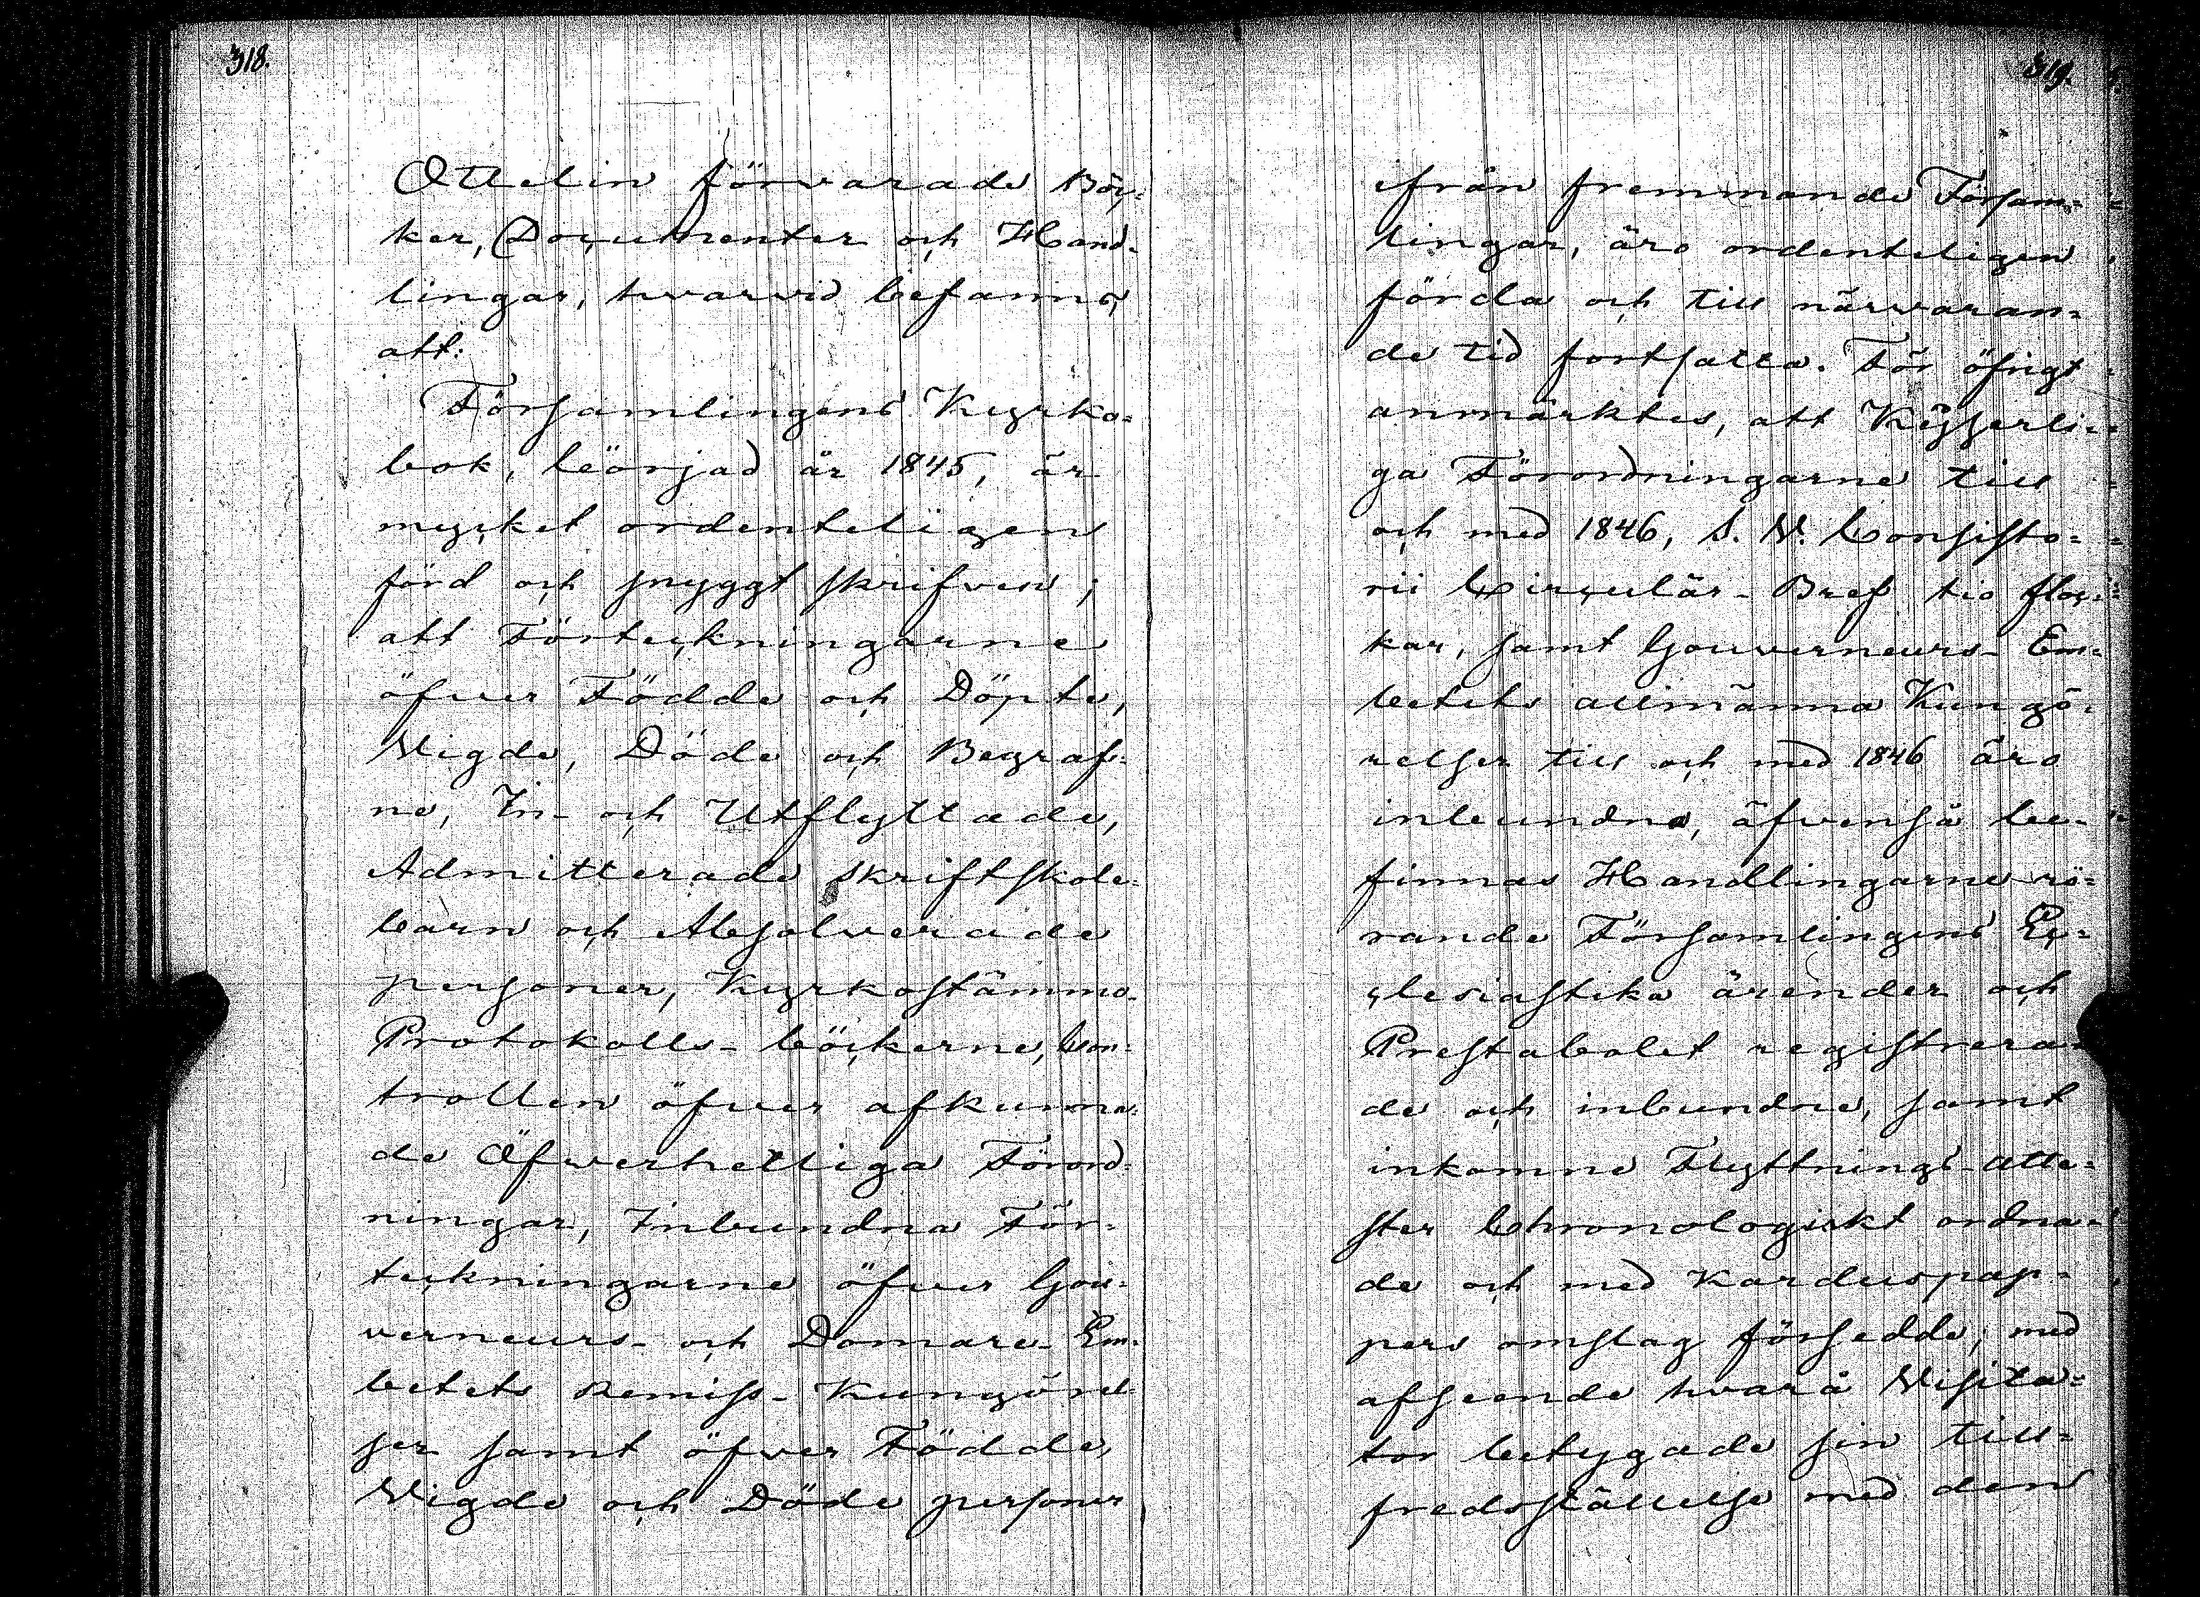 318.
Ottelin förvarade Böc-
ker, Documenter och Hand-
lingar, hvarvid befanns,
att:
Församlingens Kyrko-
bok, börjad år 1845, är
mycket ordenteligen
förd och snyggt skrifven;
att Förteckningarne
öfver Födde och Döpte,
Vigde, Döde och Begraf-
ne, In- och Utflyttade,
Admitterade skriftskole-
barn och Absolverade
personer, Kyrkostämmo-
Protokolls-böckerne, Con-
trollen öfver afkunna-
de Öfverhetliga Förord-
ningar, Inbundna För-
teckningarne öfver Gou-
verneurs- och Domare-Em-
betets Remiss-Kungörel-
ser samt öfver Födde,
Vigde och Döde personer
319.
ifrån fremmande Försam-
lingar, äro ordenteligen
förda och till närvaran-
de tid fortsatta. För öfrigt
anmärktes, att Kejserli-
ga Förordningarne till
och med 1846, S. V. Consisto-
rii Circulär-Bref tio stoc-
kar, samt Gouverneurs-Em-
betets allmänna Kungö-
relser till och med 1846 äro
inbundna, äfvenså be-
finnas Handlingarne rö-
rande Församlingens Ec-
clesiastika ärender och
Prestabolet registrera-
de och inbundne, samt
inkomne Flyttnings-atte-
ster Chronologiskt ordna-
de och med Karduspap-
pers omslag försedde; med
afseende hvarå Visita-
tor betygade sin till-
fredsställelse med den